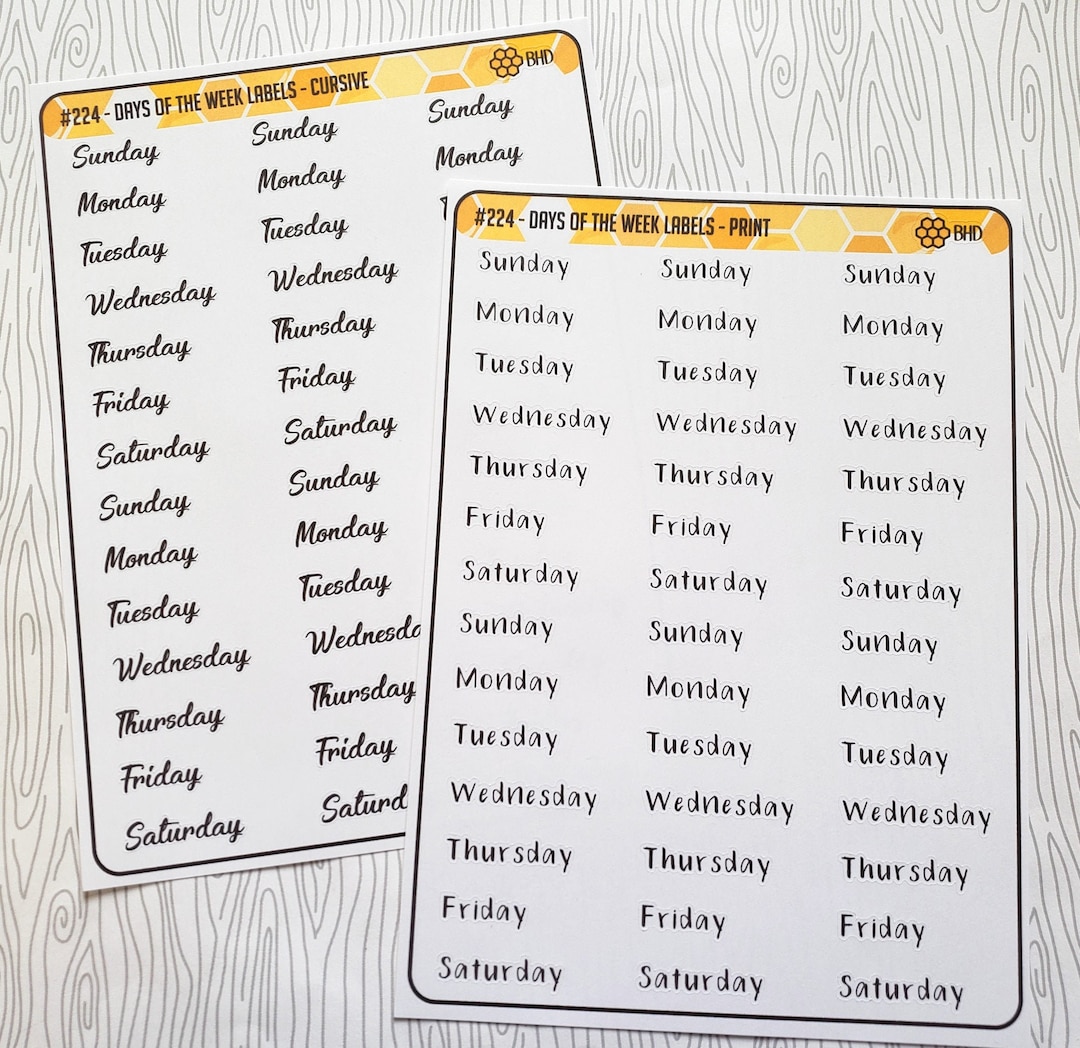 #224 - DAYS OF THE WEEK LABELS - CURSIVE BHD
Sunday Sunday Sunday
Monday Monday Monday
Tuesday Tuesday
Wednesday Wednesday
Thursday Thursday
Friday Friday
Saturday Saturday
Sunday Sunday
Monday Monday
Tuesday Tuesday
Wednesday Wednesda
Thursday Thursday
Friday Friday
Saturday Saturd
#224 - DAYS OF THE WEEK LABELS - PRINT BHD
Sunday Sunday Sunday
Monday Monday Monday
Tuesday Tuesday Tuesday
Wednesday Wednesday Wednesday
Thursday Thursday Thursday
Friday Friday Friday
Saturday Saturday Saturday
Sunday Sunday Sunday
Monday Monday Monday
Tuesday Tuesday Tuesday
Wednesday Wednesday Wednesday
Thursday Thursday Thursday
Friday Friday Friday
Saturday Saturday Saturday